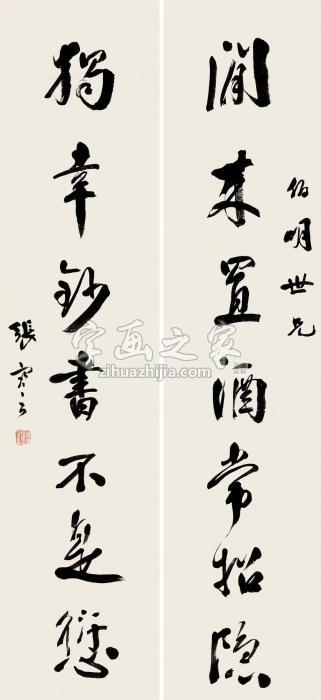 伯明世兄
閒来置酒常招隱
獨幸鈔書不是愆
張
字画之家
zihuazhijia.com